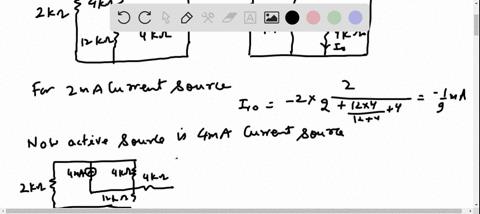 4kΩ
2kΩ
12kΩ
4kΩ
4kΩ
I₁₀
For 2mA Current Source
I₁₀ = -2 × 2 / 2 + 12×4 / 12+4 + 4 = -1/9 mA
Now active Source is 4mA Current Source
2kΩ
4mA
4kΩ
4kΩ
12kΩ